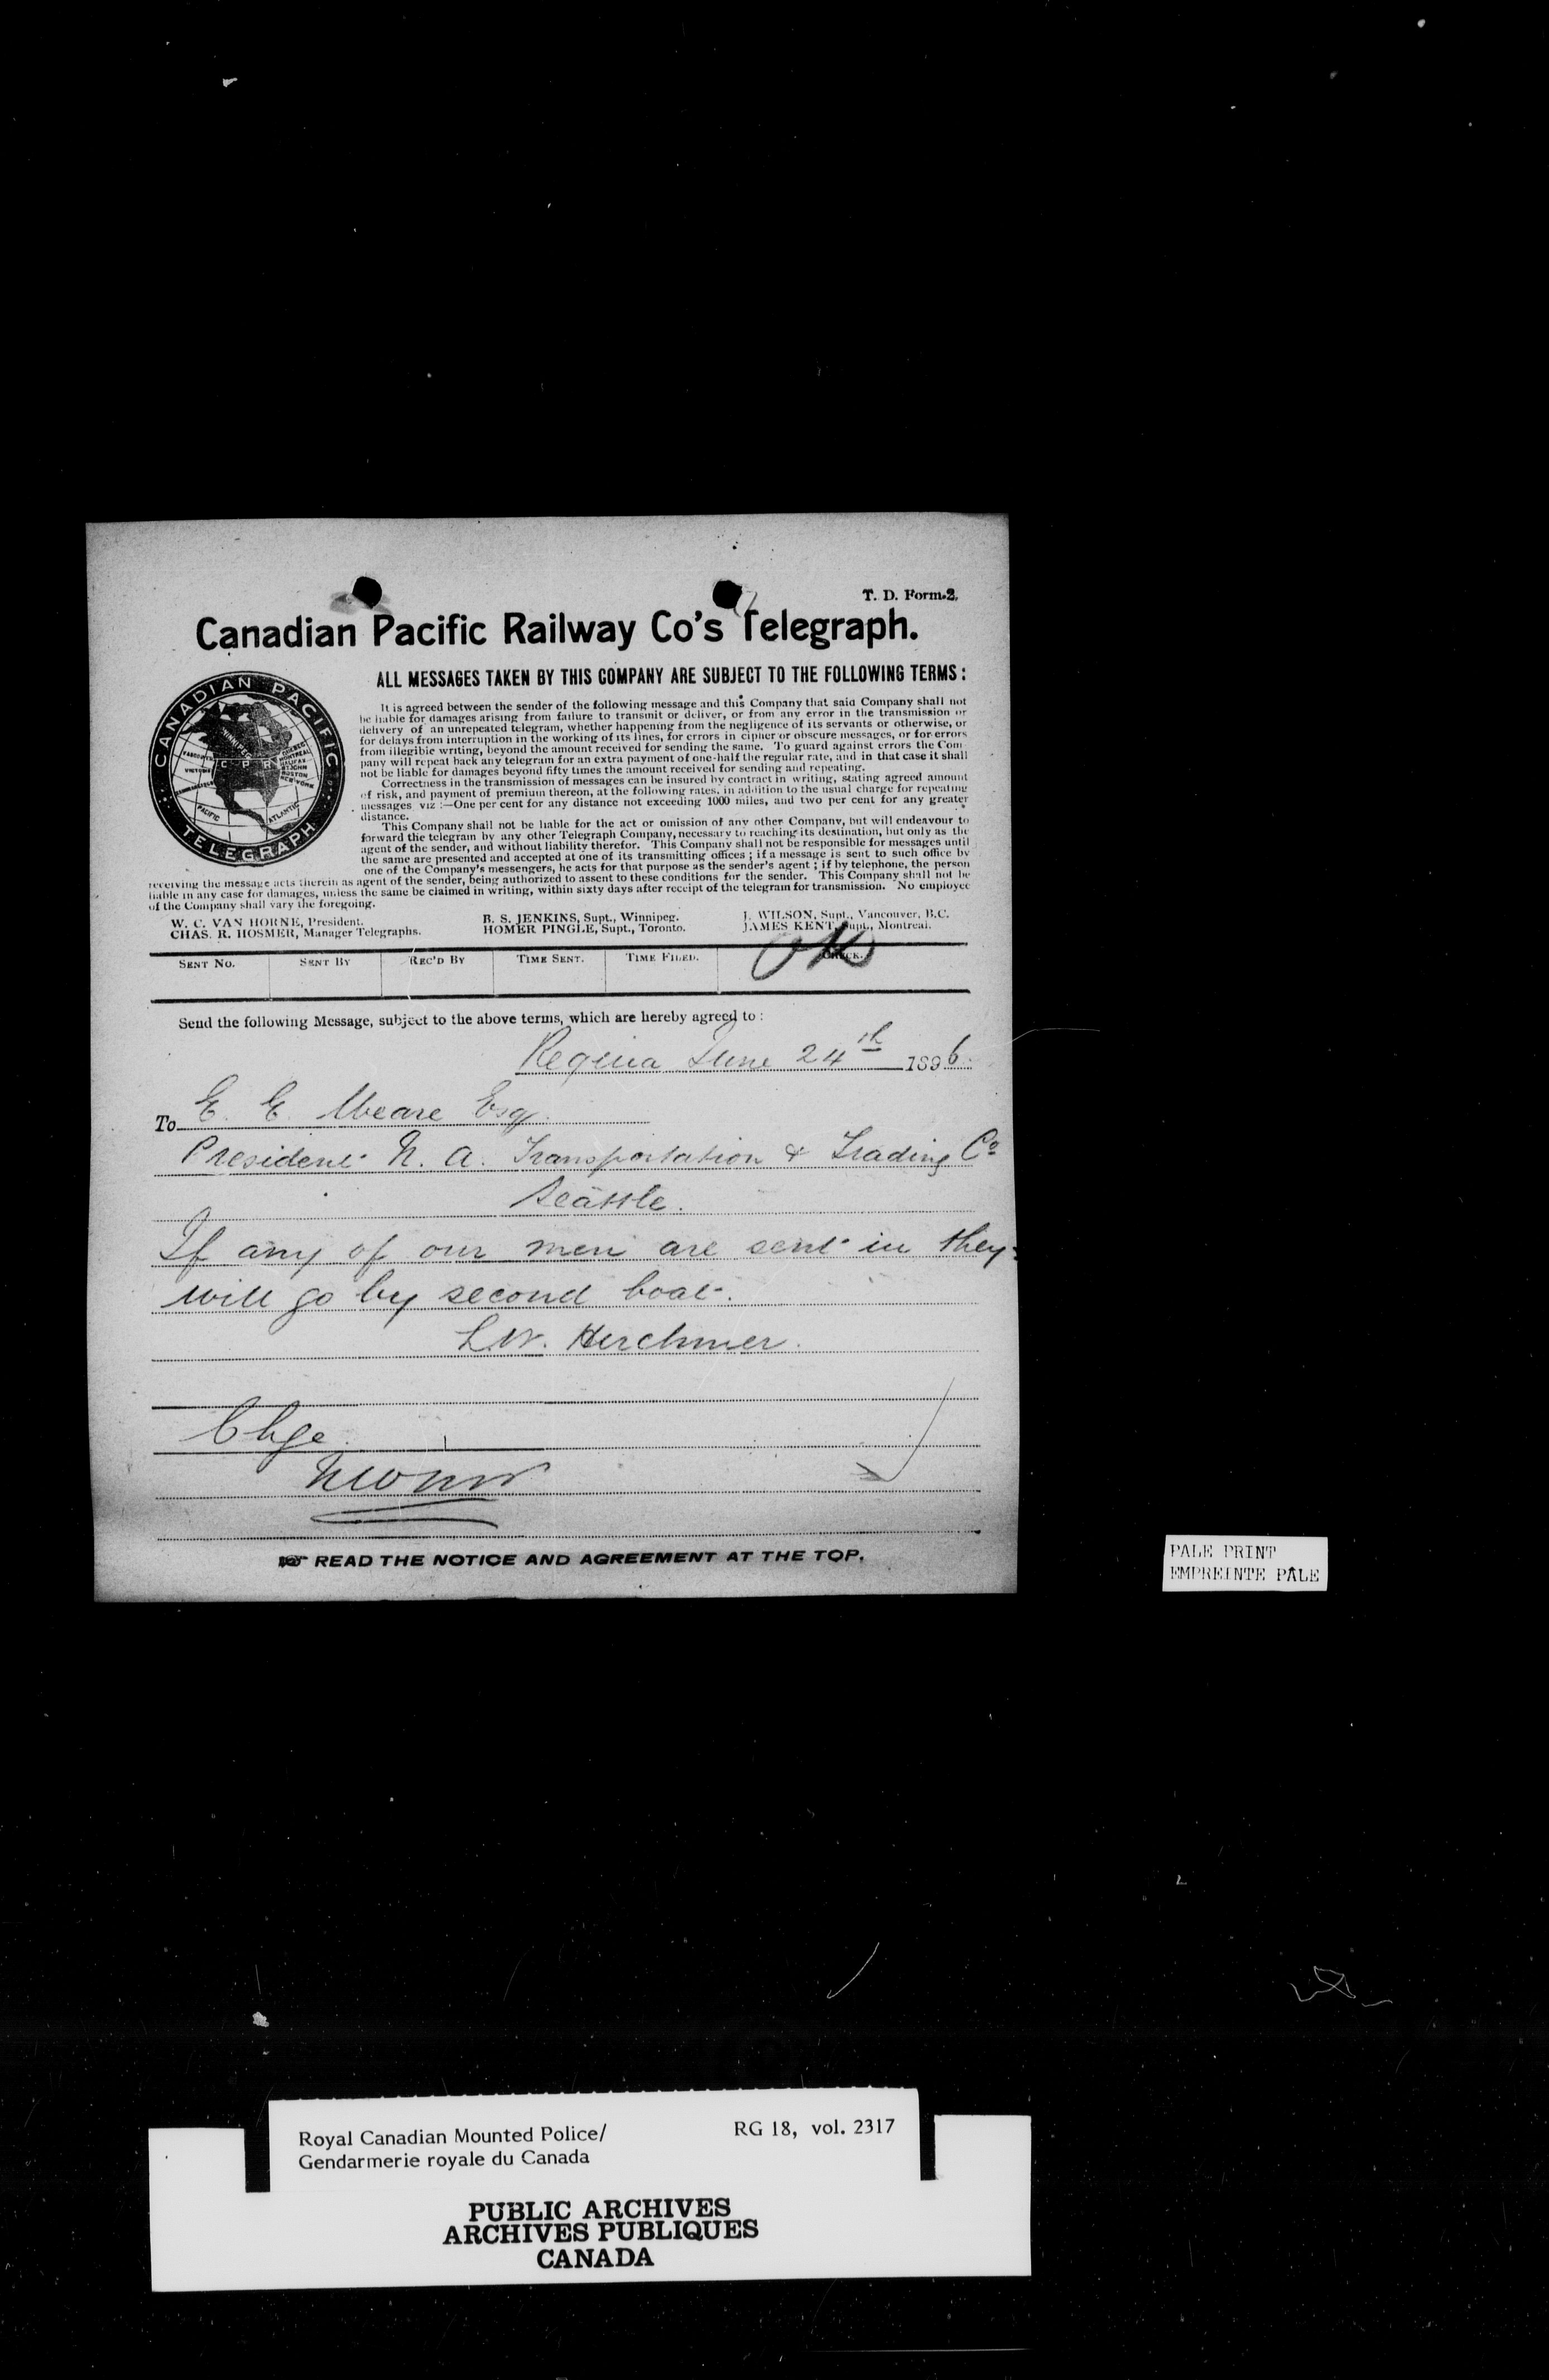 T. D. Form 2.
Canadian Pacific Railway Co's Telegraph.
ALL MESSAGES TAKEN BY THIS COMPANY ARE SUBJECT TO THE FOLLOWING TERMS:
CANADIAN PACIFIC TELEGRAPH
C P R
PACIFIC ATLANTIC
It is agreed between the sender of the following message and this Company that said Company shall not
be liable for damages arising from failure to transmit or deliver, or from any error in the transmission or
delivery of an unrepeated telegram, whether happening from the negligence of its servants or otherwise, or
for delays from interruption in the working of its lines, for errors in cipher or obscure messages, or for errors
from illegible writing, beyond the amount received for sending the same. To guard against errors the Com-
pany will repeat back any telegram for an extra payment of one-half the regular rate, and in that case it shall
not be liable for damages beyond fifty times the amount received for sending and repeating.
Correctness in the transmission of messages can be insured by contract in writing, stating agreed amount
of risk, and payment of premium thereon, at the following rates, in addition to the usual charge for repeating
messages viz :—One per cent for any distance not exceeding 1000 miles, and two per cent for any greater
distance.
This Company shall not be liable for the act or omission of any other Company, but will endeavour to
forward the telegram by any other Telegraph Company, necessary to reaching its destination, but only as the
agent of the sender, and without liability therefor. This Company shall not be responsible for messages until
the same are presented and accepted at one of its transmitting offices ; if a message is sent to such office by
one of the Company's messengers, he acts for that purpose as the sender's agent ; if by telephone, the person
receiving the message acts therein as agent of the sender, being authorized to assent to these conditions for the sender. This Company shall not be
liable in any case for damages, unless the same be claimed in writing, within sixty days after receipt of the telegram for transmission. No employee
of the Company shall vary the foregoing.
W. C. VAN HORNE, President. B. S. JENKINS, Supt., Winnipeg. J. WILSON, Supt., Vancouver, B.C.
CHAS. R. HOSMER, Manager Telegraphs. HOMER PINGLE, Supt., Toronto. JAMES KENT, Supt., Montreal.
SENT NO. SENT BY REC'D BY TIME SENT. TIME FILED. CHECK.
OK
Send the following Message, subject to the above terms, which are hereby agreed to :
Regina June 24th 1896
To E. E. Weare Esq.
President N. A. Transportation & Trading Co
Seattle.
If any of our men are sent in they
will go by second boat.
L.W. Herchmer.
Chge
NWMP
READ THE NOTICE AND AGREEMENT AT THE TOP.
PALE PRINT
EMPREINTE PÂLE
Royal Canadian Mounted Police/ RG 18, vol. 2317
Gendarmerie royale du Canada
PUBLIC ARCHIVES
ARCHIVES PUBLIQUES
CANADA